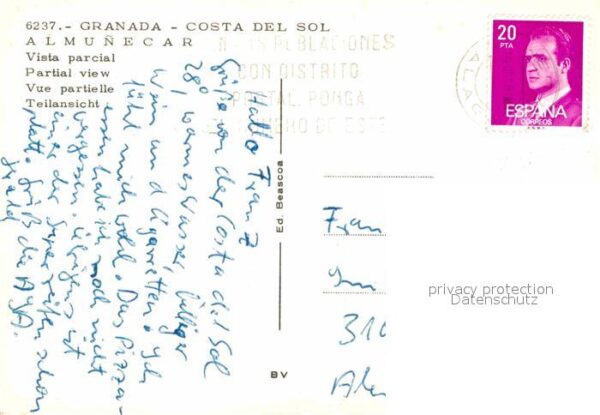 6237.- GRANADA - COSTA DEL SOL
ALMUÑECAR
Vista parcial
Partial view
Vue partielle
Teilansicht
N LAS POBLACIONES
CON DISTRITO
POSTAL, PONGA
EL NUMERO DE ESTE
20
PTA
ESPAÑA
CORREOS
Hallo Franz
Grüße von der Costa del Sol
28°, warmes Wasser, billiger
Wein und Zigaretten. Ich
fühl mich wohl. Das Pizza-
essen habe ich noch nicht
vergessen. Übrigens ist
einer der Superreifen schon
platt. Grüß die AJA.
Gerald
Ed. Beascoa
BV
Fran
Im
310
privacy protection
Datenschutz